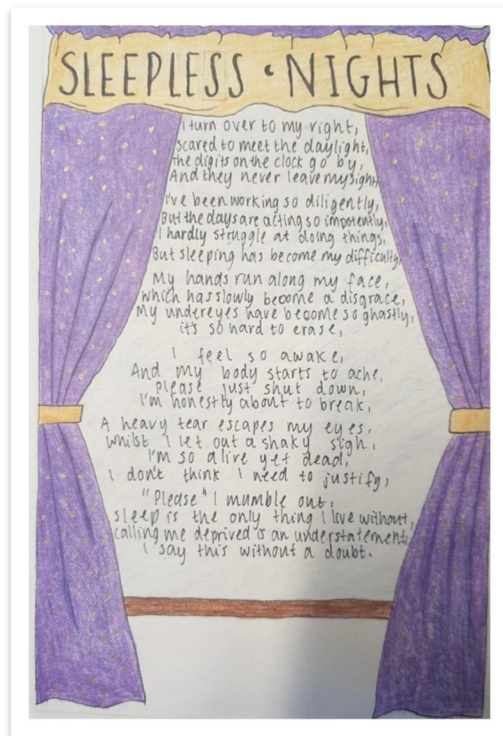 SLEEPLESS · NIGHTS
I turn over to my right,
scared to meet the daylight,
the digits on the clock go by,
And they never leave my sight,
I've been working so diligently,
But the days are acting so impotently,
I hardly struggle at doing things,
But sleeping has become my difficulty,
My hands run along my face,
which has slowly become a disgrace,
My undereyes have become so ghastly,
it's so hard to erase,
I feel so awake,
And my body starts to ache,
please just shut down,
I'm honestly about to break,
A heavy tear escapes my eyes,
whilst I let out a shaky sigh,
I'm so alive yet dead,
I don't think I need to justify,
"Please" I mumble out,
sleep is the only thing I live without,
calling me deprived is an understatement,
I say this without a doubt.